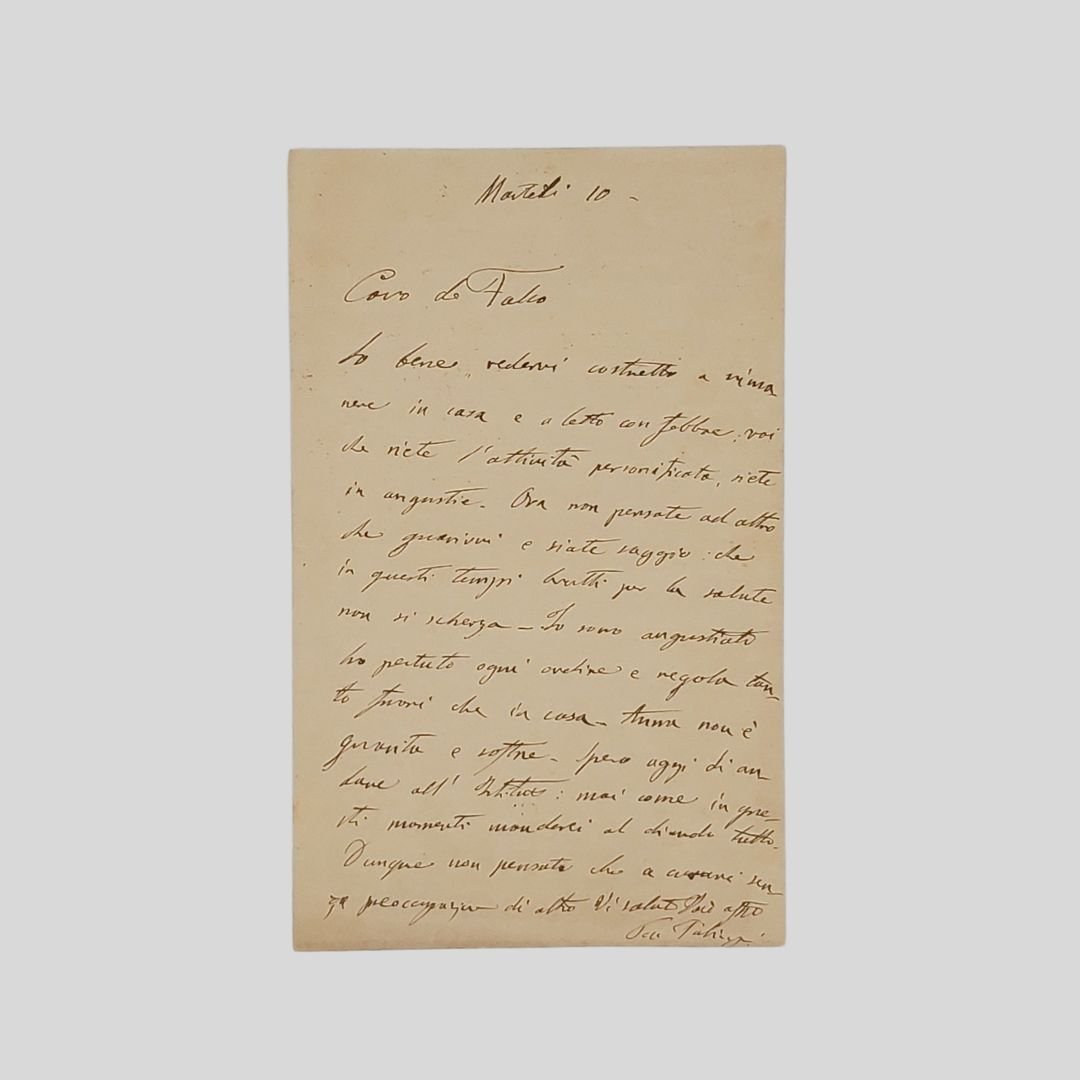 Martedi 10 -
Caro de Falco
So bene, vedervi costretto a rima
nere in casa e a letto con febbre; voi
che siete l'attività personificata, siete
in angustie. Ora non pensate ad altro
che guarirvi e siate saggio: che
in questi tempi brutti per la salute
non si scherza - Io sono angustiato
ho perduto ogni ordine e regola tan_
to fuori che in casa - Anna non è
guarita e soffre. Spero oggi di an_
dare all' : mai come in que_
sti momenti manderei al diavolo tutto.
Dunque non pensate che a curarvi sen_
za preoccupazione di altro Vi saluto affto